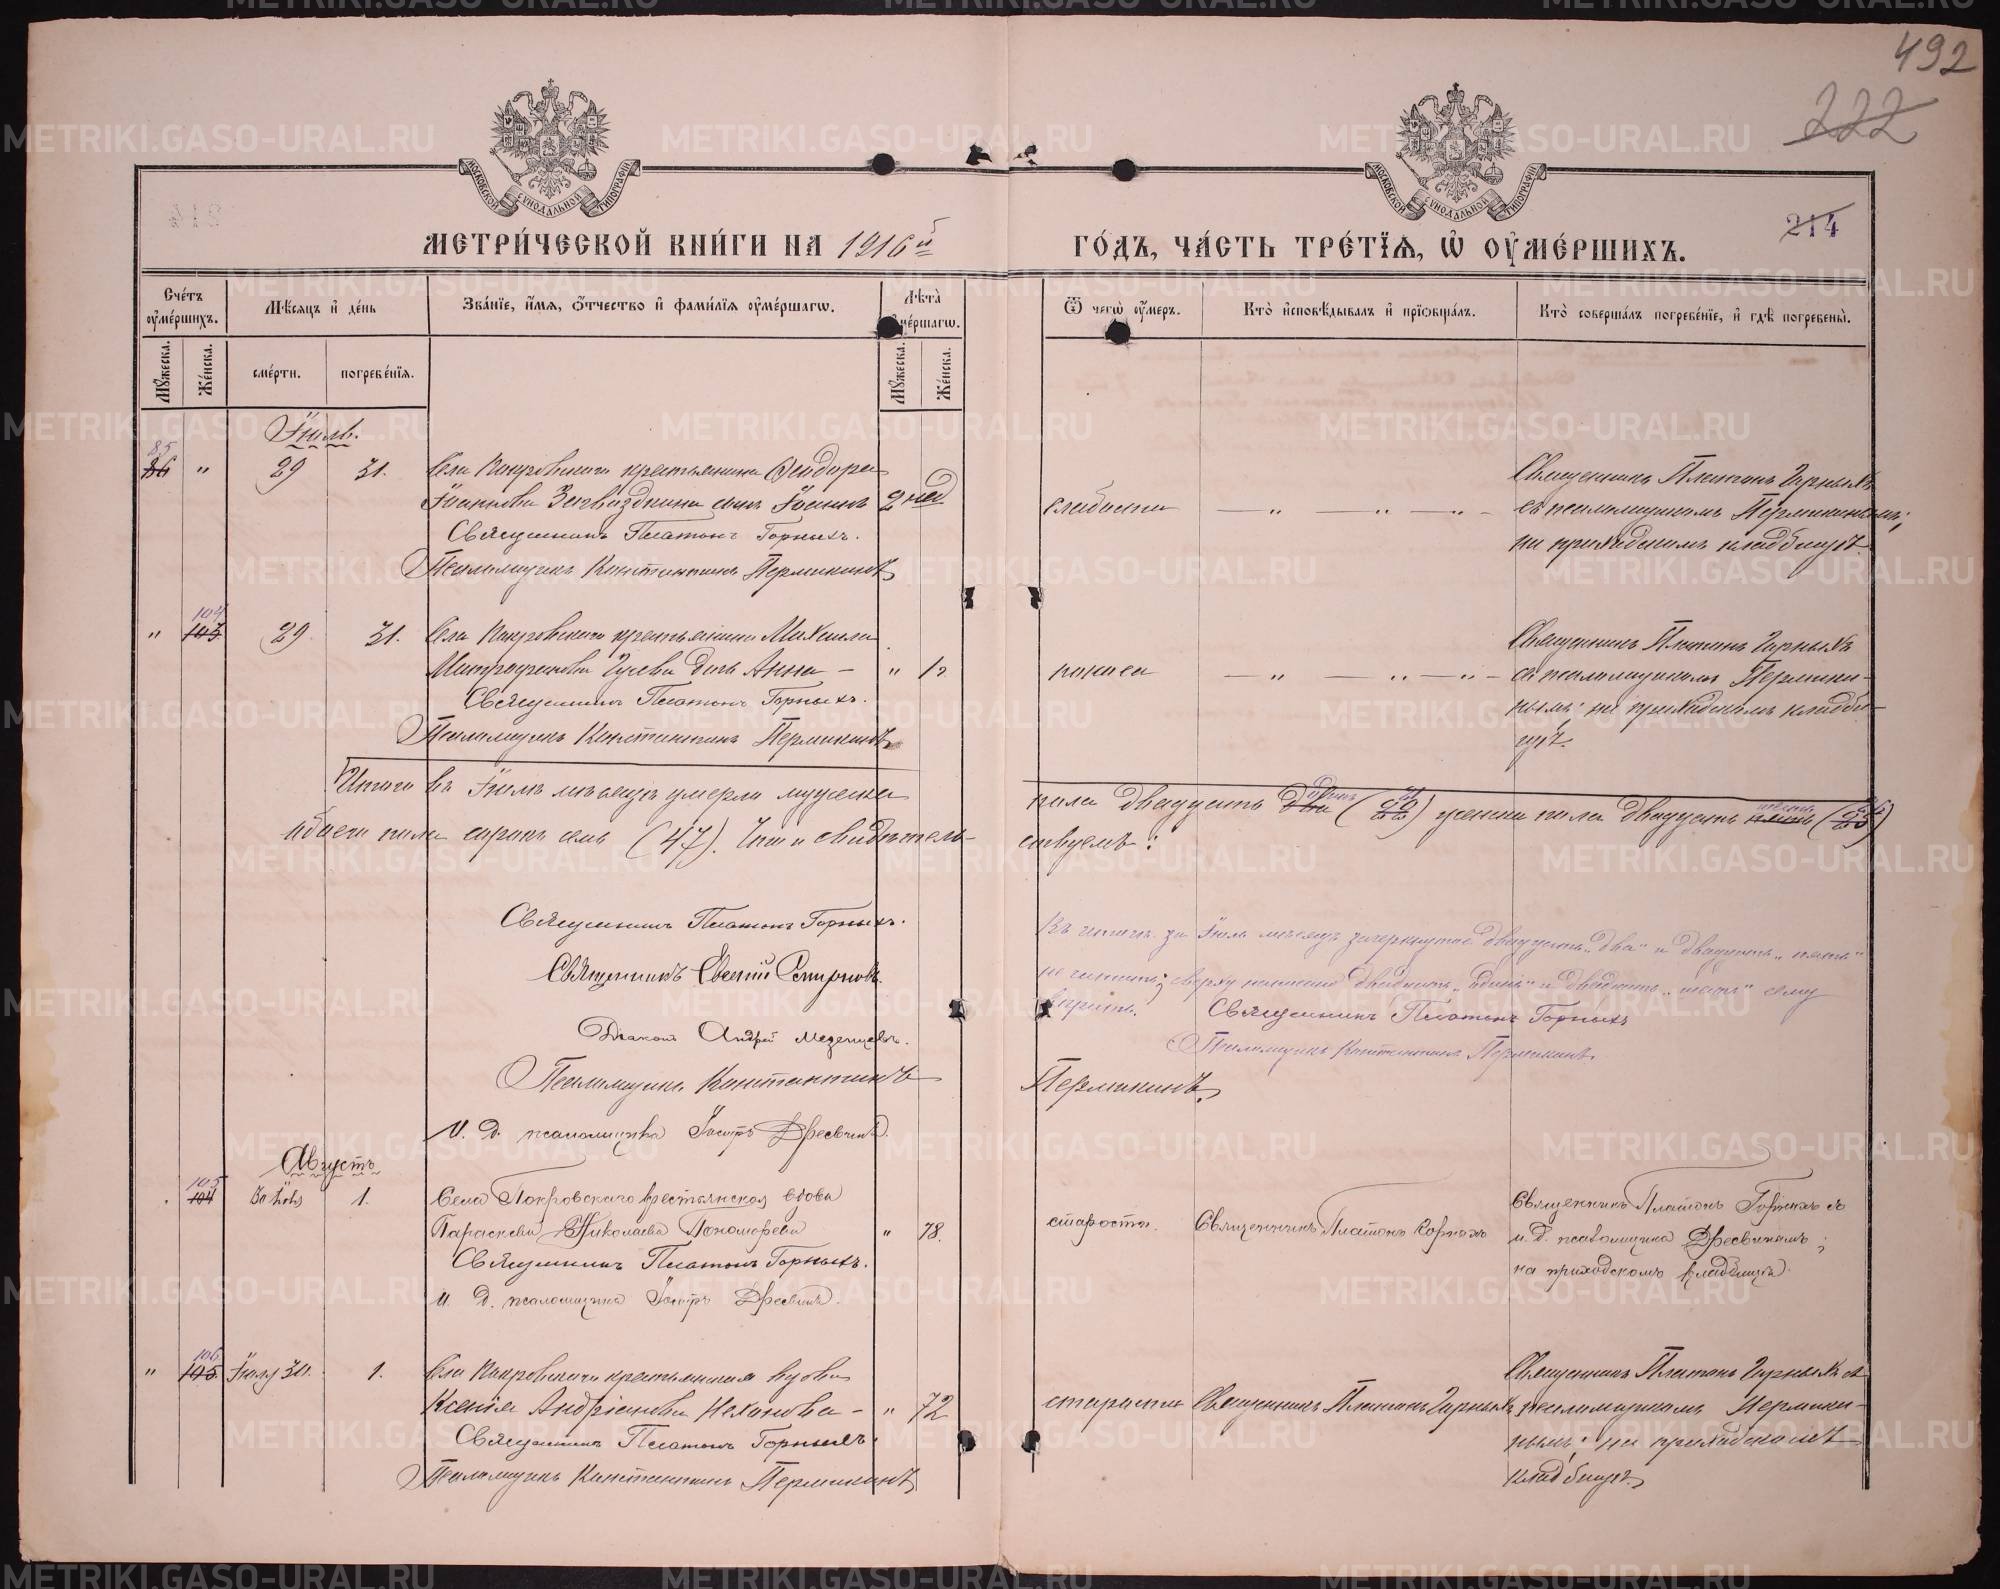 492
222
214
МЕТРИ́ЧЕСКОЙ КНИ́ГИ НА 1916й ГО́ДЪ, ЧА́СТЬ ТРЕ́ТЇѦ, Ѡ҆ ОУ҆МЕ́РШИХЪ.
МОСКОВСКОЙ СѴНОДАЛЬНОЙ ТИПОГРАФІИ
МОСКОВСКОЙ СѴНОДАЛЬНОЙ ТИПОГРАФІИ
Сче́тъ оу҆ме́ршихъ.
Мѣ́сяцъ и҆ де́нь
Зва́нїе, и҆́мѧ, ѻ҆́тчество и҆ фами́лїѧ оу҆ме́ршагѡ.
Лѣ́та оу҆ме́ршагѡ.
Ѿ чегѡ̀ оу҆́меръ.
Кто̀ и҆сповѣ́дывалъ и҆ прїѡбща́лъ.
Кто̀ соверша́лъ погребе́нїе, и҆ гдѣ̀ погребены̀.
Мꙋ́жеска. Же́нска.
сме́рти. погребе́нїѧ.
Мꙋ́жеска. Же́нска.
Іюль.
85
86 " 29 31. Села Покровскаго крестьянина Ѳеодора
Іоаннова Загвоздкина сынъ Іоаннъ 2 нед
Священникъ Платонъ Горныхъ.
Псаломщикъ Константинъ Пермикинъ
слабости — " — " — " —
Священникъ Платонъ Горныхъ
съ псаломщикомъ Пермикинымъ;
на приходскомъ кладбищѣ.
104
" 103 29. 31. Села Покровскаго крестьянина Михаила
Митрофанова Гусева дочь Анна — "
Священникъ Платонъ Горныхъ.
Псаломщикъ Константинъ Пермикинъ
поноса — " — " — " —
Священникъ Платонъ Горныхъ
съ псаломщикомъ Пермики-
нымъ; на приходскомъ кладби-
щѣ.
Итого въ Іюлѣ мѣсяцѣ умерло мужеска пола двадцать два одинъ (22 21) женска пола двадцать пять шесть (25 26)
обоего пола сорокъ семь (47). Что и свидѣтель-
ствуемъ:
Священникъ Платонъ Горныхъ.
Священникъ Евгеній Смирновъ.
Діаконъ Андрей Мезенцевъ.
Псаломщикъ Константинъ Пермикинъ.
И. д. псаломщика Дресвинъ.
Въ итогѣ за Іюль мѣсяцъ зачеркнутое двадцать „два" и двадцать „пять"
не читать; сверху написано двадцать „одинъ" и двадцать „шесть" сему
вѣрить. Священникъ Платонъ Горныхъ
Псаломщикъ Константинъ Пермикинъ.
Августъ
105
104 30 Іюля 1. Села Покровскаго крестьянская вдова
Параскева Николаева Пономарева " 78.
Священникъ Платонъ Горныхъ.
И. д. псаломщика Дресвинъ.
старости. Священникъ Платонъ Горныхъ
Священникъ Платонъ Горныхъ съ
и. д. псаломщика Дресвинымъ;
на приходскомъ кладбищѣ.
106
" 105 Іюля 30. 1. Села Покровскаго крестьянская вдова
Ксенія Андріанова Неханова — " 72
Священникъ Платонъ Горныхъ.
Псаломщикъ Константинъ Пермикинъ
старости Священникъ Платонъ Горныхъ
Священникъ Платонъ Горныхъ съ
псаломщикомъ Пермики-
нымъ; на приходскомъ
кладбищѣ
METRIKI.GASO-URAL.RU